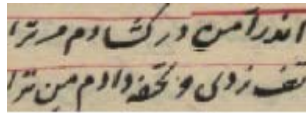 اندرآ من در کشادم مر ترا
تف زدی و تحفه دادم من ترا